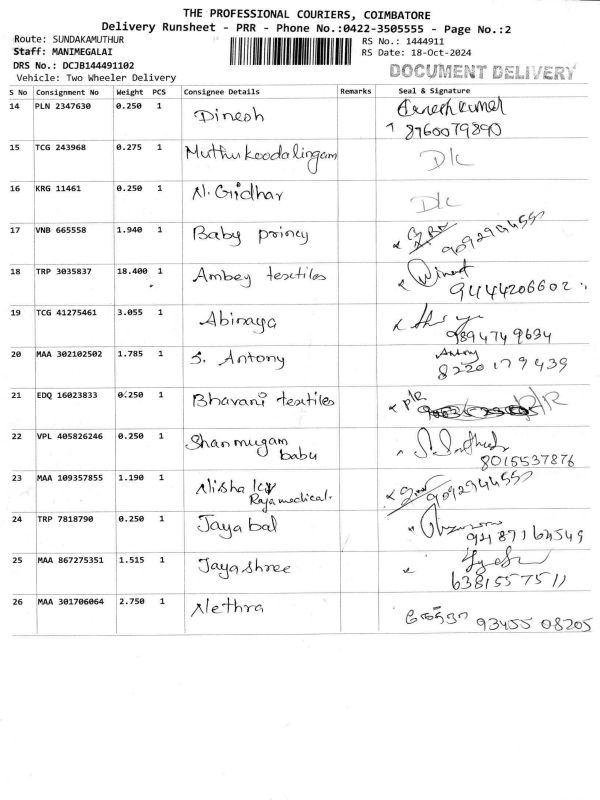 THE PROFESSIONAL COURIERS, COIMBATORE
Delivery Runsheet - PRR - Phone No.:0422-3505555 - Page No.:2
Route: SUNDAKAMUTHUR
RS No.: 1444911
Staff: MANIMEGALAI
RS Date: 18-Oct-2024
DRS No.: DCJB144491102
DOCUMENT DELIVERY
Vehicle: Two Wheeler Delivery
S No Consignment No Weight PCS Consignee Details Remarks Seal & Signature
14 PLN 2347630 0.250 1 Dinesh
8760079890
15 TCG 243968 0.275 1 Muthukoodalingam D/c
16 KRG 11461 0.250 1 N. Gridhar D/c
17 VNB 665558 1.940 1 Baby princy
18 TRP 3035837 18.400 1 Ambey textiles
9444206602
19 TCG 41275461 3.055 1 Abinaya
9894749694
20 MAA 302102502 1.785 1 S. Antony Antony
8220179439
21 EDQ 16023833 0.250 1 Bhavani textiles P/R P/R
22 VPL 405826246 0.250 1 Shanmugam
babu
8015537876
23 MAA 109357855 1.190 1 Nisha
Raja medical. 9092944550
24 TRP 7818790 0.250 1 Jaya bal
25 MAA 867275351 1.515 1 Jayashree
6381557511
26 MAA 301706064 2.750 1 Nethra
93455 08205